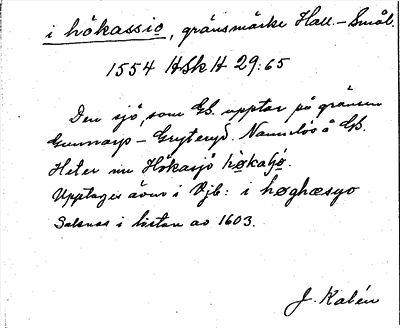 i hökassio, gränsmärke Hall.-Smål.
1554 HSkH 29:65
Den sjö, som GS. upptar på gränsen
Gunnarp - Gryteryd. Namnlös å GS.
Heter nu Hökasjö hökasjö.
Upptages även i Vjb: i høghæsyo
Saknas i listan av 1603.
J. Kalén